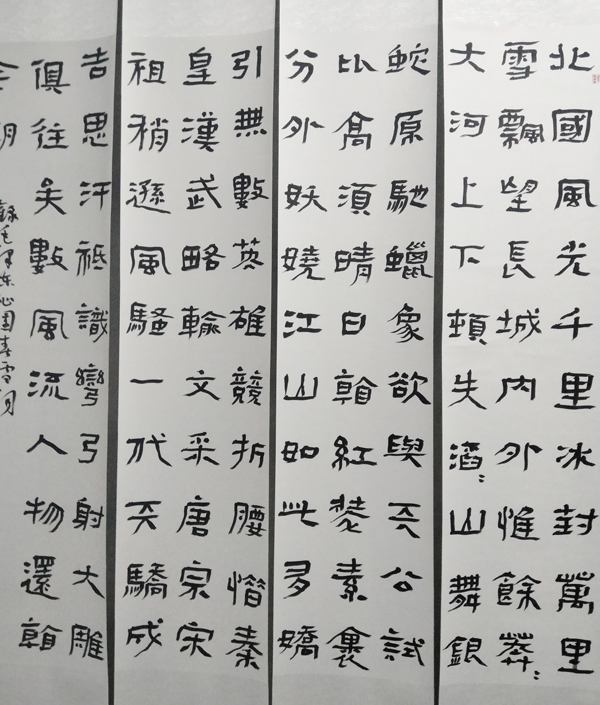 北國風光千里冰封萬里
雪飄望長城內外惟餘莽〻
大河上下頓失滔〻山舞銀
蛇原馳蠟象欲與天公試
比高須晴日看紅裝素裹
分外妖嬈江山如此多嬌
引無數英雄競折腰惜秦
皇漢武略輸文采唐宗宋
祖稍遜風騷一代天驕成
吉思汗祗識彎弓射大雕
俱往矣數風流人物還看
今朝
錄毛澤東沁園春雪詞